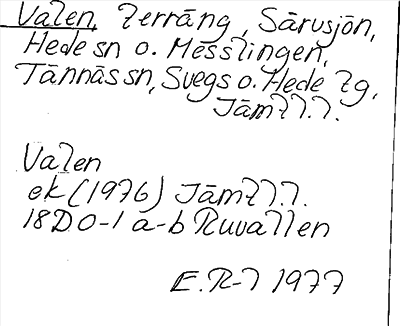 Valen, terräng, Särusjön,
Hede sn o. Messlingen,
Tännäs sn, Svegs o. Hede tg,
Jämtl.l.
Valen
ek (1976) Jämtl.l.
18D 0-1 a-b Ruvallen
E.R-l 1977